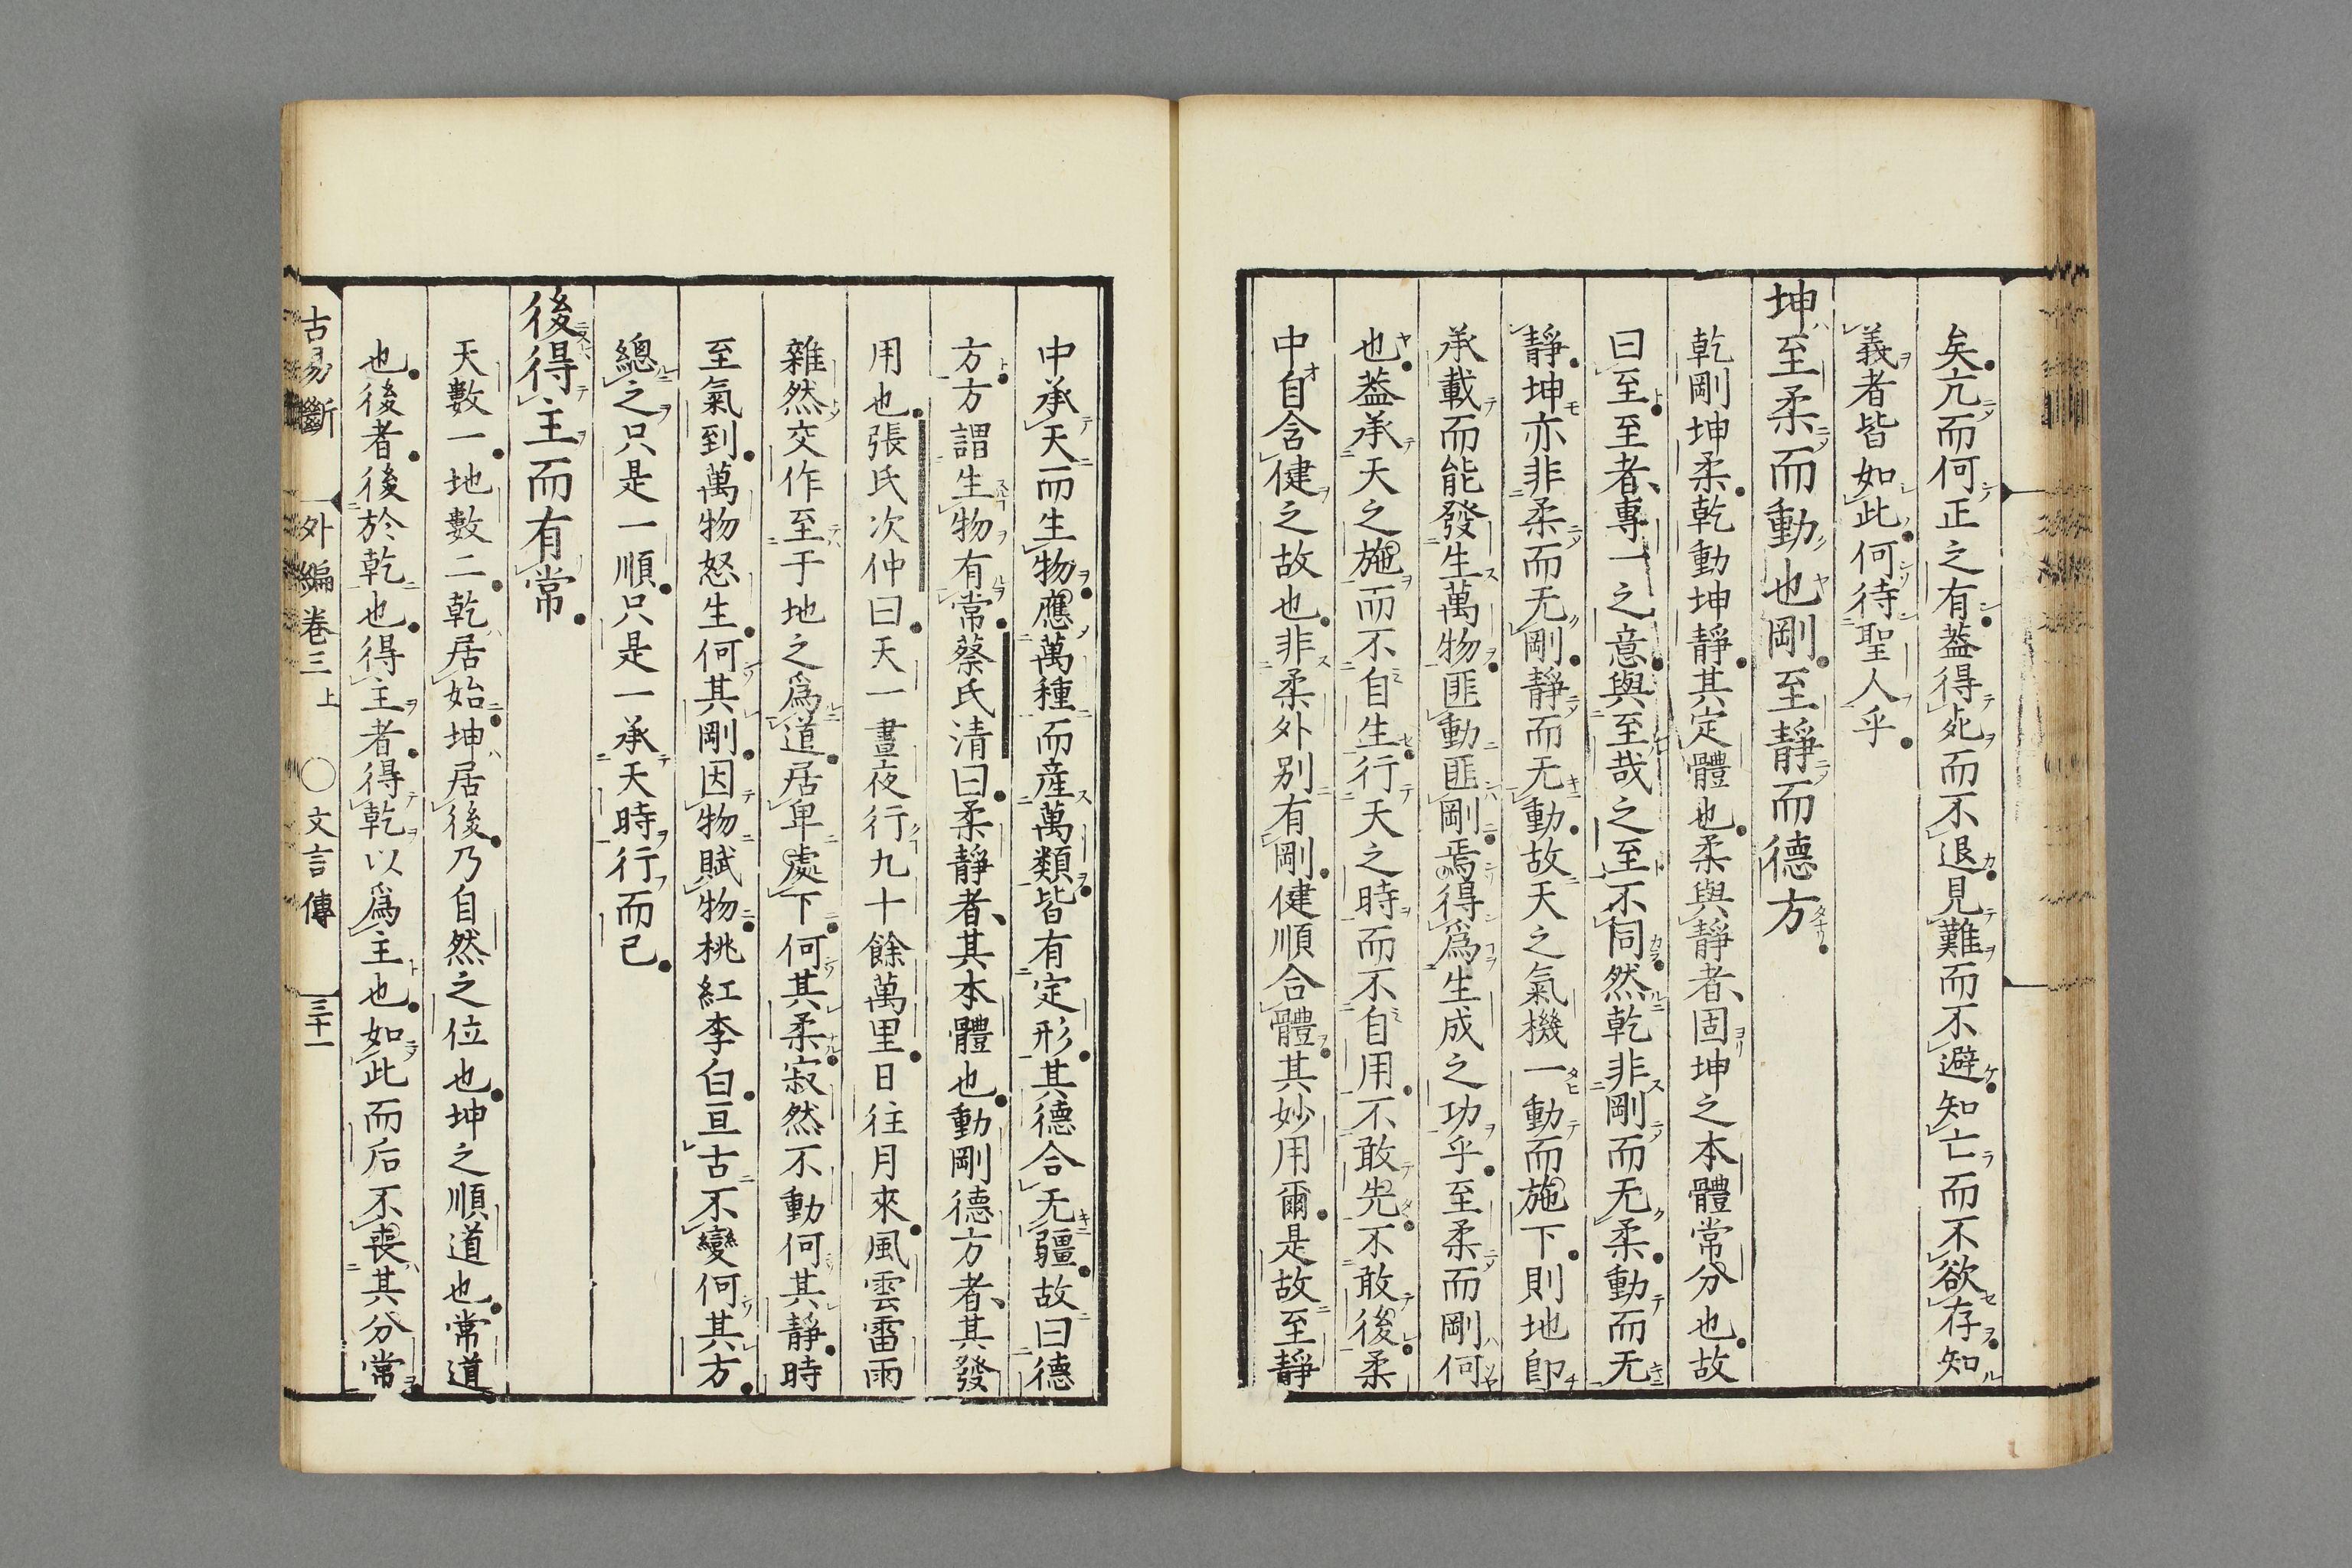 矣亢而何正之有蓋得死而不退見難而不避知亡而不欲存知
義者皆如此何待聖人乎
坤至柔而動也剛至靜而德方
乾剛坤柔乾動坤靜其定體也柔與靜者固坤之本體常分也故
曰至至者專一之意與至哉之至不同然乾非剛而无柔動而无
靜坤亦非柔而无剛靜而无動故天之氣機一動而施下則地卽
承載而能發生萬物匪動匪剛焉得爲生成之功乎至柔而剛何
也蓋承天之施而不自生行天之時而不自用不敢先不敢後柔
中自含健之故也非柔外別有剛健順合體其妙用爾是故至靜
中承天而生物應萬種而産萬類皆有定形其德合无疆故曰德
方方謂生物有常蔡氏清曰柔靜者其本體也動剛德方者其發
用也張氏次仲曰天一晝夜行九十餘萬里日往月來風雲雷雨
雜然交作至于地之爲道居卑處下何其柔寂然不動何其靜時
至氣到萬物怒生何其剛因物賦物桃紅李白亘古不變何其方
總之只是一順只是一承天時行而已
後得主而有常
天數一地數二乾居始坤居後乃自然之位也坤之順道也常道
也後者後於乾也得主者得乾以爲主也如此而后不喪其分常
古易斷 外編卷三上 ○文言傳 三十一